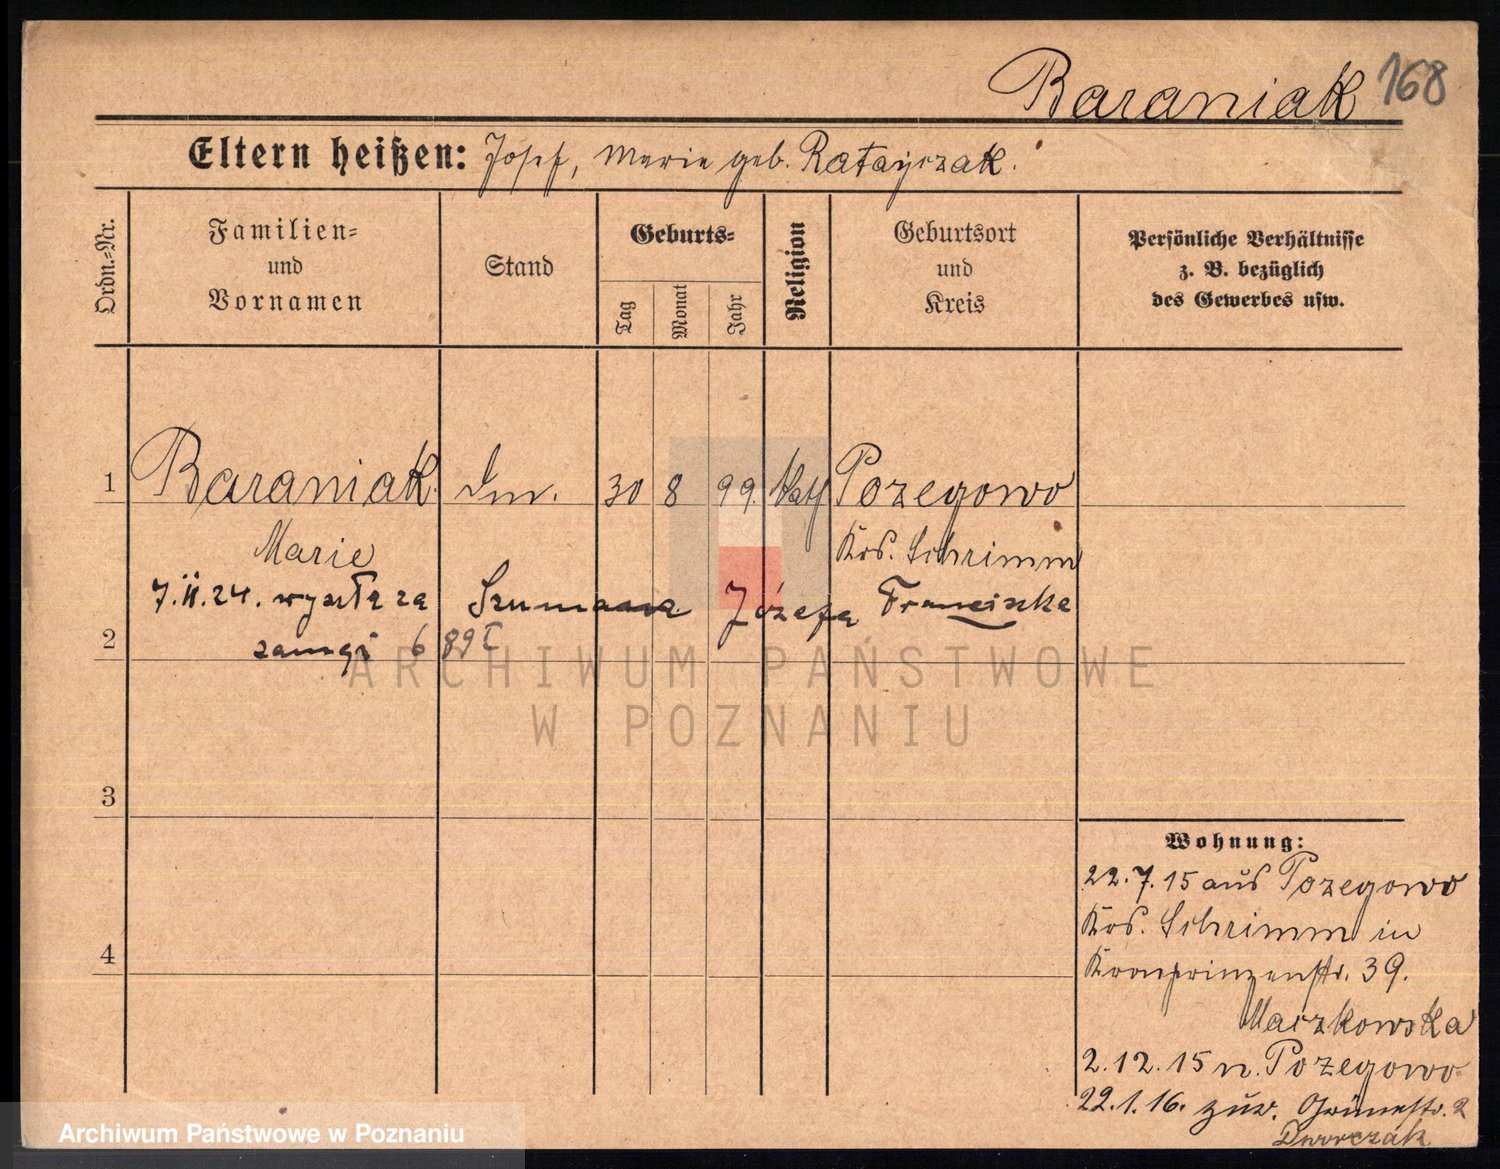 Baraniak 168
Eltern heißen: Josef, Marie geb. Ratajczak.
Ordn.-Nr.
Familien-
und
Vornamen
Stand
Geburts-
Tag
Monat
Jahr
Religion
Geburtsort
und
Kreis
Persönliche Verhältnisse
z. B. bezüglich
des Gewerbes usw.
1 Baraniak 30 8 99. kath Pozegowo
Marie Krs. Schrimm
7.II.24. wyszła za Józefa Franciszka
2 zamąż 6 89 I
ARCHIWUM PAŃSTWOWE
W POZNANIU
3
4
Wohnung:
22.7.15 aus Pozegowo
Krs. Schrimm in
Kronprinzenstr. 39.
Maczkowska
2.12.15 n. Pozegowo
22.1.16. zur. Grünestr. 2
Dworczak
Archiwum Państwowe w Poznaniu